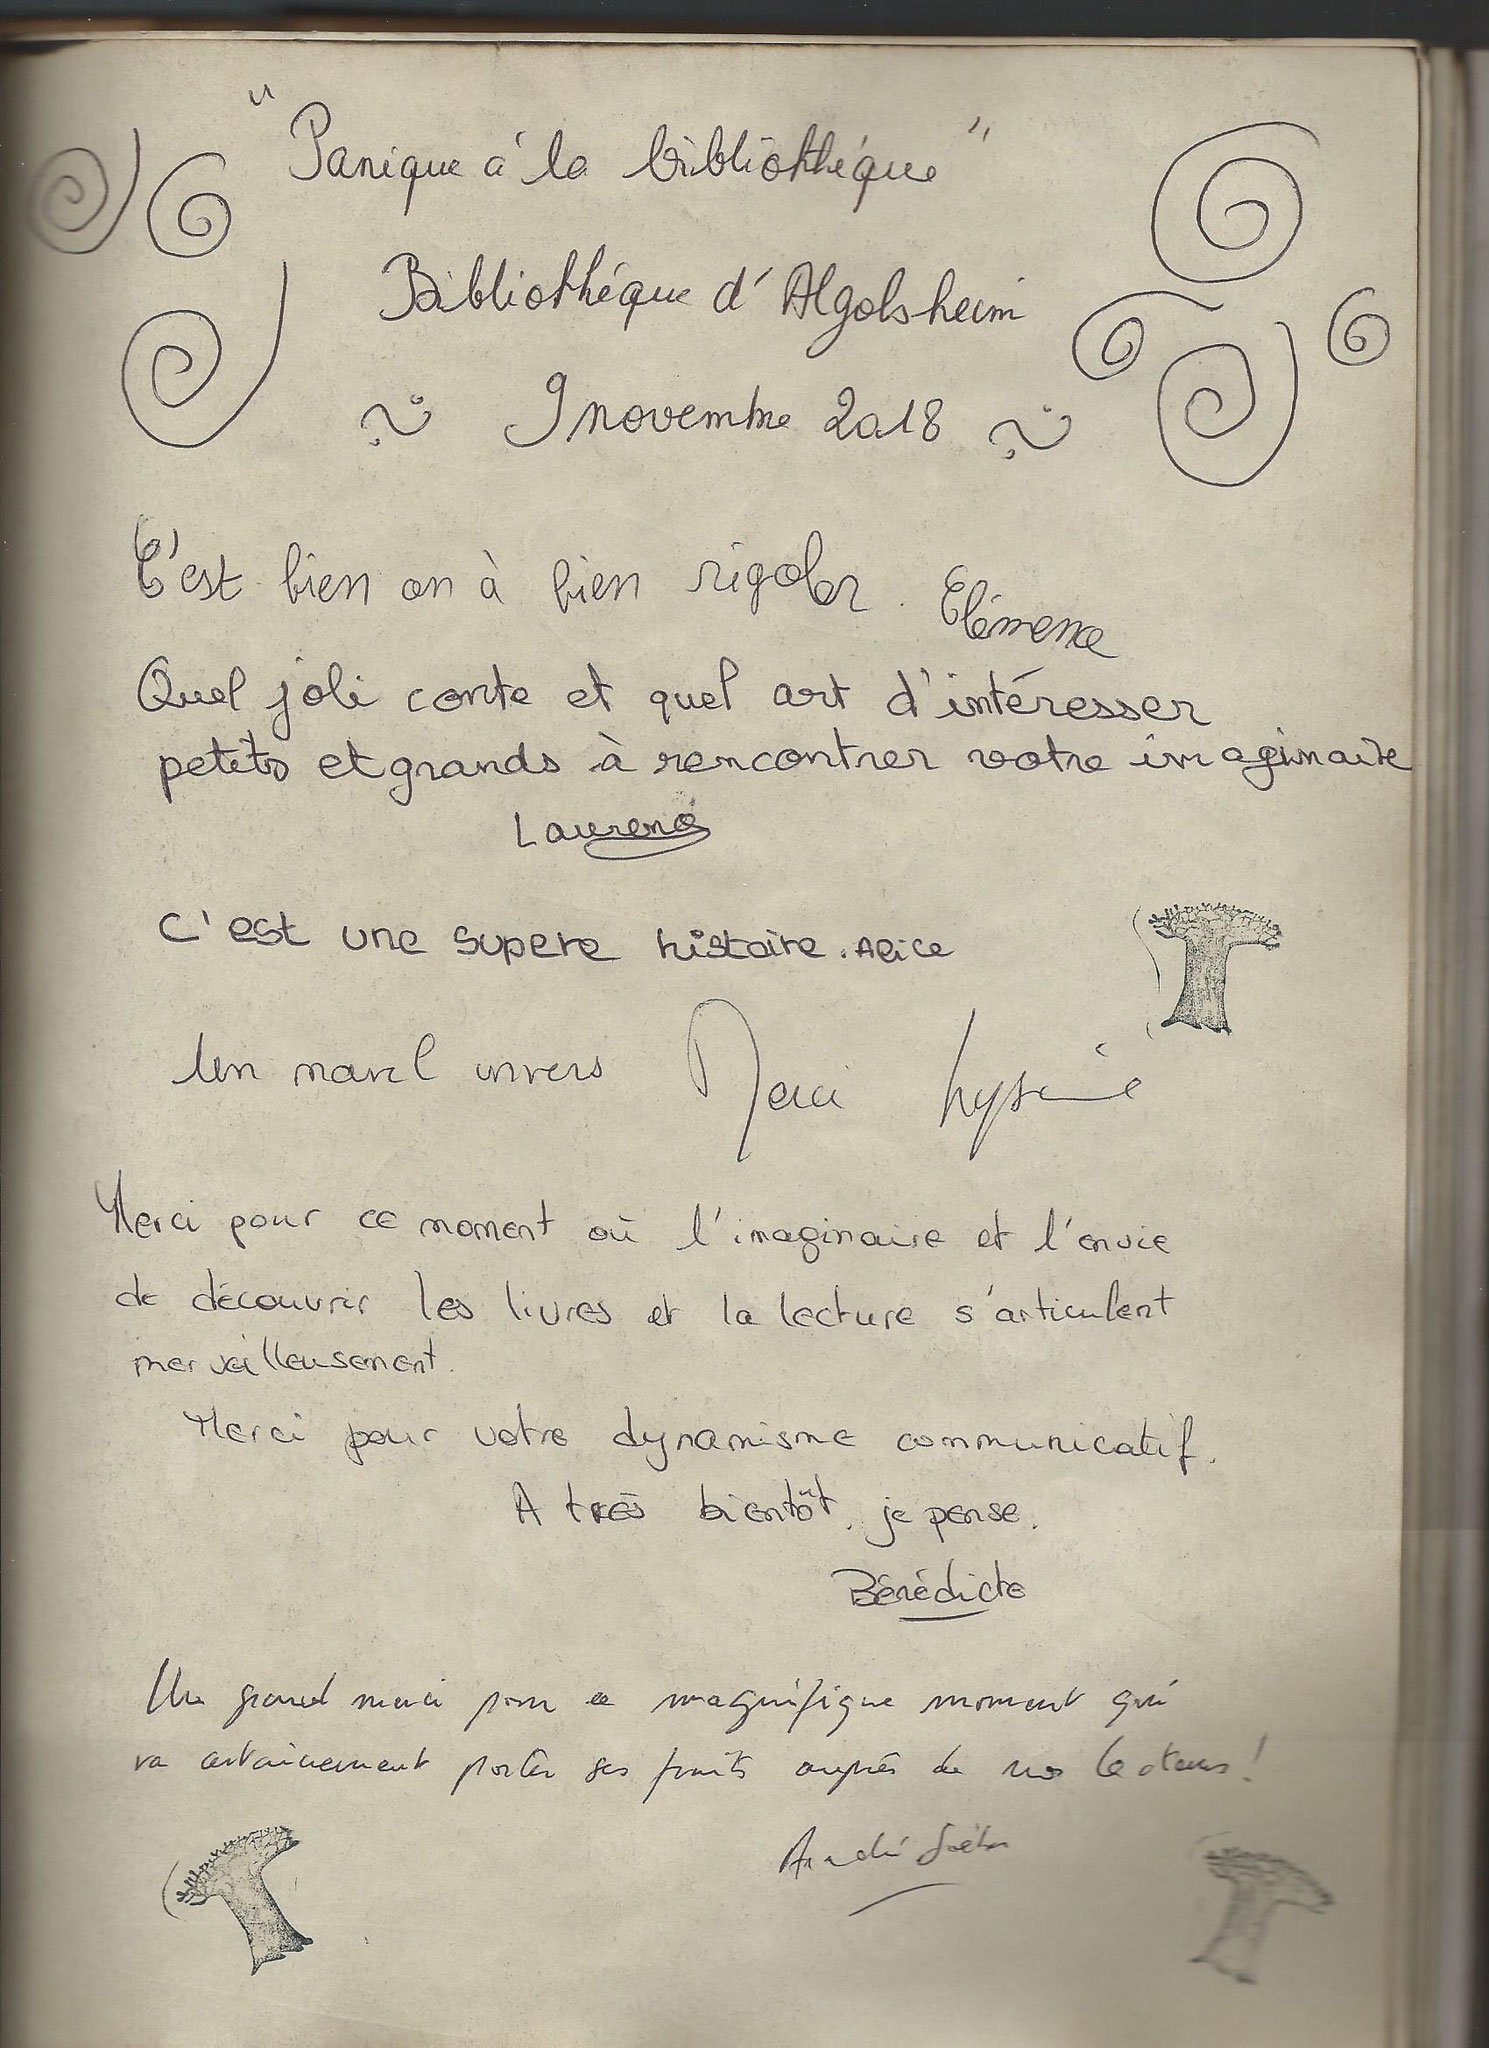 "Panique à la bibliothéque"
Bibliothéque d'Algolsheim
9 novembre 2018
C'est bien on à bien rigoler. Clémence
Quel joli conte et quel art d'intéresser
petits et grands à rencontrer votre imaginaire
Laurence
C'est une supere histoire. Alice
Un univers Merci
Merci pour ce moment où l'imaginaire et l'envie
de découvrir les livres et la lecture s'articulent
merveilleusement.
Merci pour votre dynamisme communicatif.
A très bientôt, je pense.
Bénédicte
Un grand merci pour ce magnifique moment qui
va certainement porter ses fruits auprès de nos lecteurs!
André